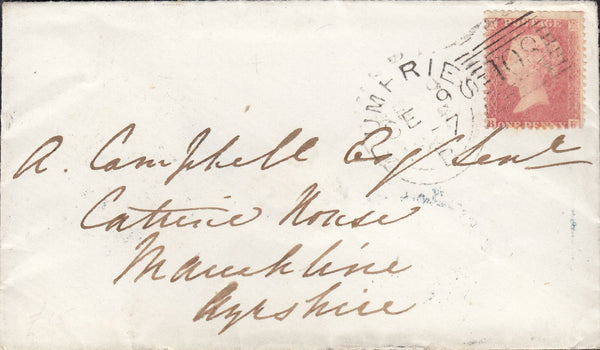 POSTAGE
ONE PENNY
108
DUMFRIES
A. Campbell Esq Senr
Catrine House
Mauchline
Ayrshire